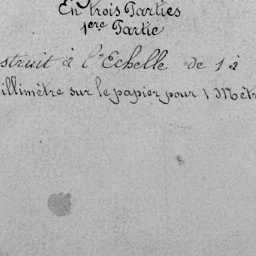 En trois Parties
1ère Partie
struit à l'Echelle de 1 à
illimètre sur le papier pour 1 Mètr